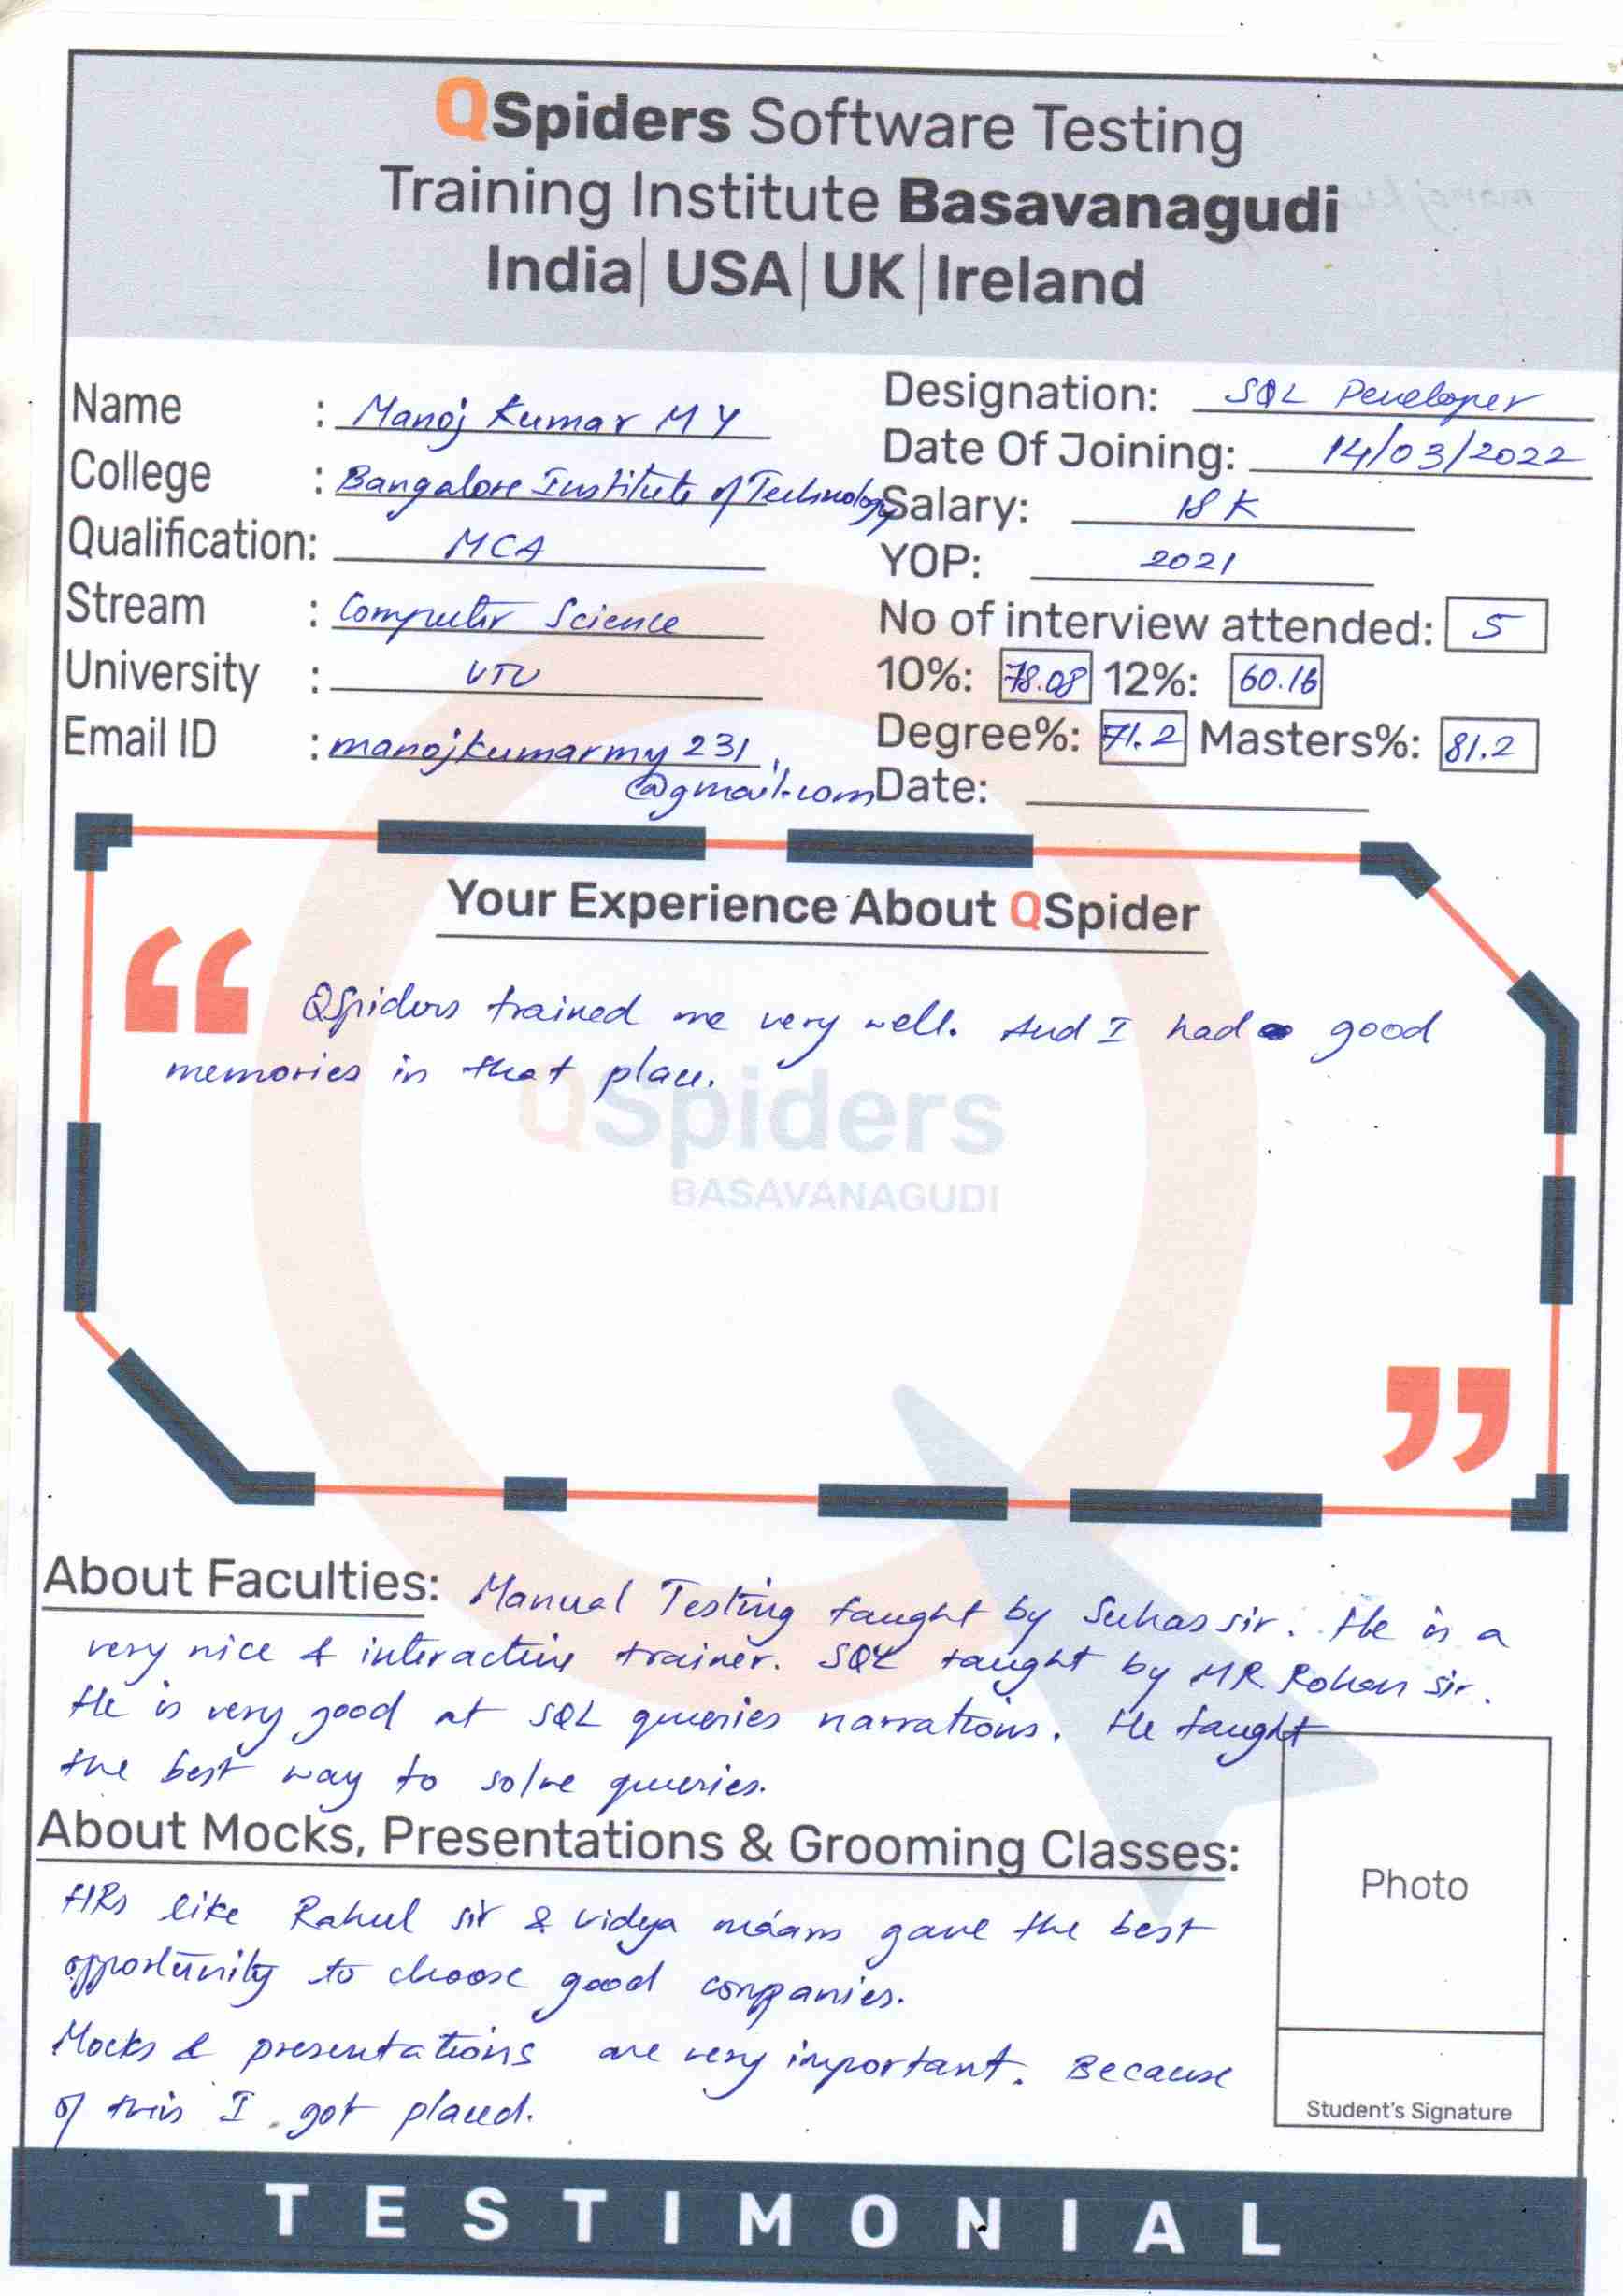 QSpiders Software Testing
Training Institute Basavanagudi
India| USA| UK| Ireland
Name : Manoj Kumar M Y
Designation: SQL Developer
College : Bangalore Institute of Technology
Date Of Joining: 14/03/2022
Qualification: MCA
Salary: 18 K
YOP: 2021
Stream : Computer Science
No of interview attended: 5
University : VTU
10%: 78.08 12%: 60.16
Email ID : manojkumarmy 231
@gmail.com
Degree%: 71.2 Masters%: 81.2
Date:
Your Experience About QSpider
QSpiders trained me very well. And I had good
memories in that place.
QSpiders
BASAVANAGUDI
About Faculties: Manual Testing taught by Suhas sir. He is a
very nice & interactive trainer. SQL taught by MR Rohan sir.
He is very good at SQL queries narrations. He taught
the best way to solve queries.
About Mocks, Presentations & Grooming Classes:
HRs like Rahul sir & vidya ma'am gave the best
opportunity to choose good companies.
Mocks & presentations are very important. Because
of this I got placed.
Photo
Student's Signature
TESTIMONIAL